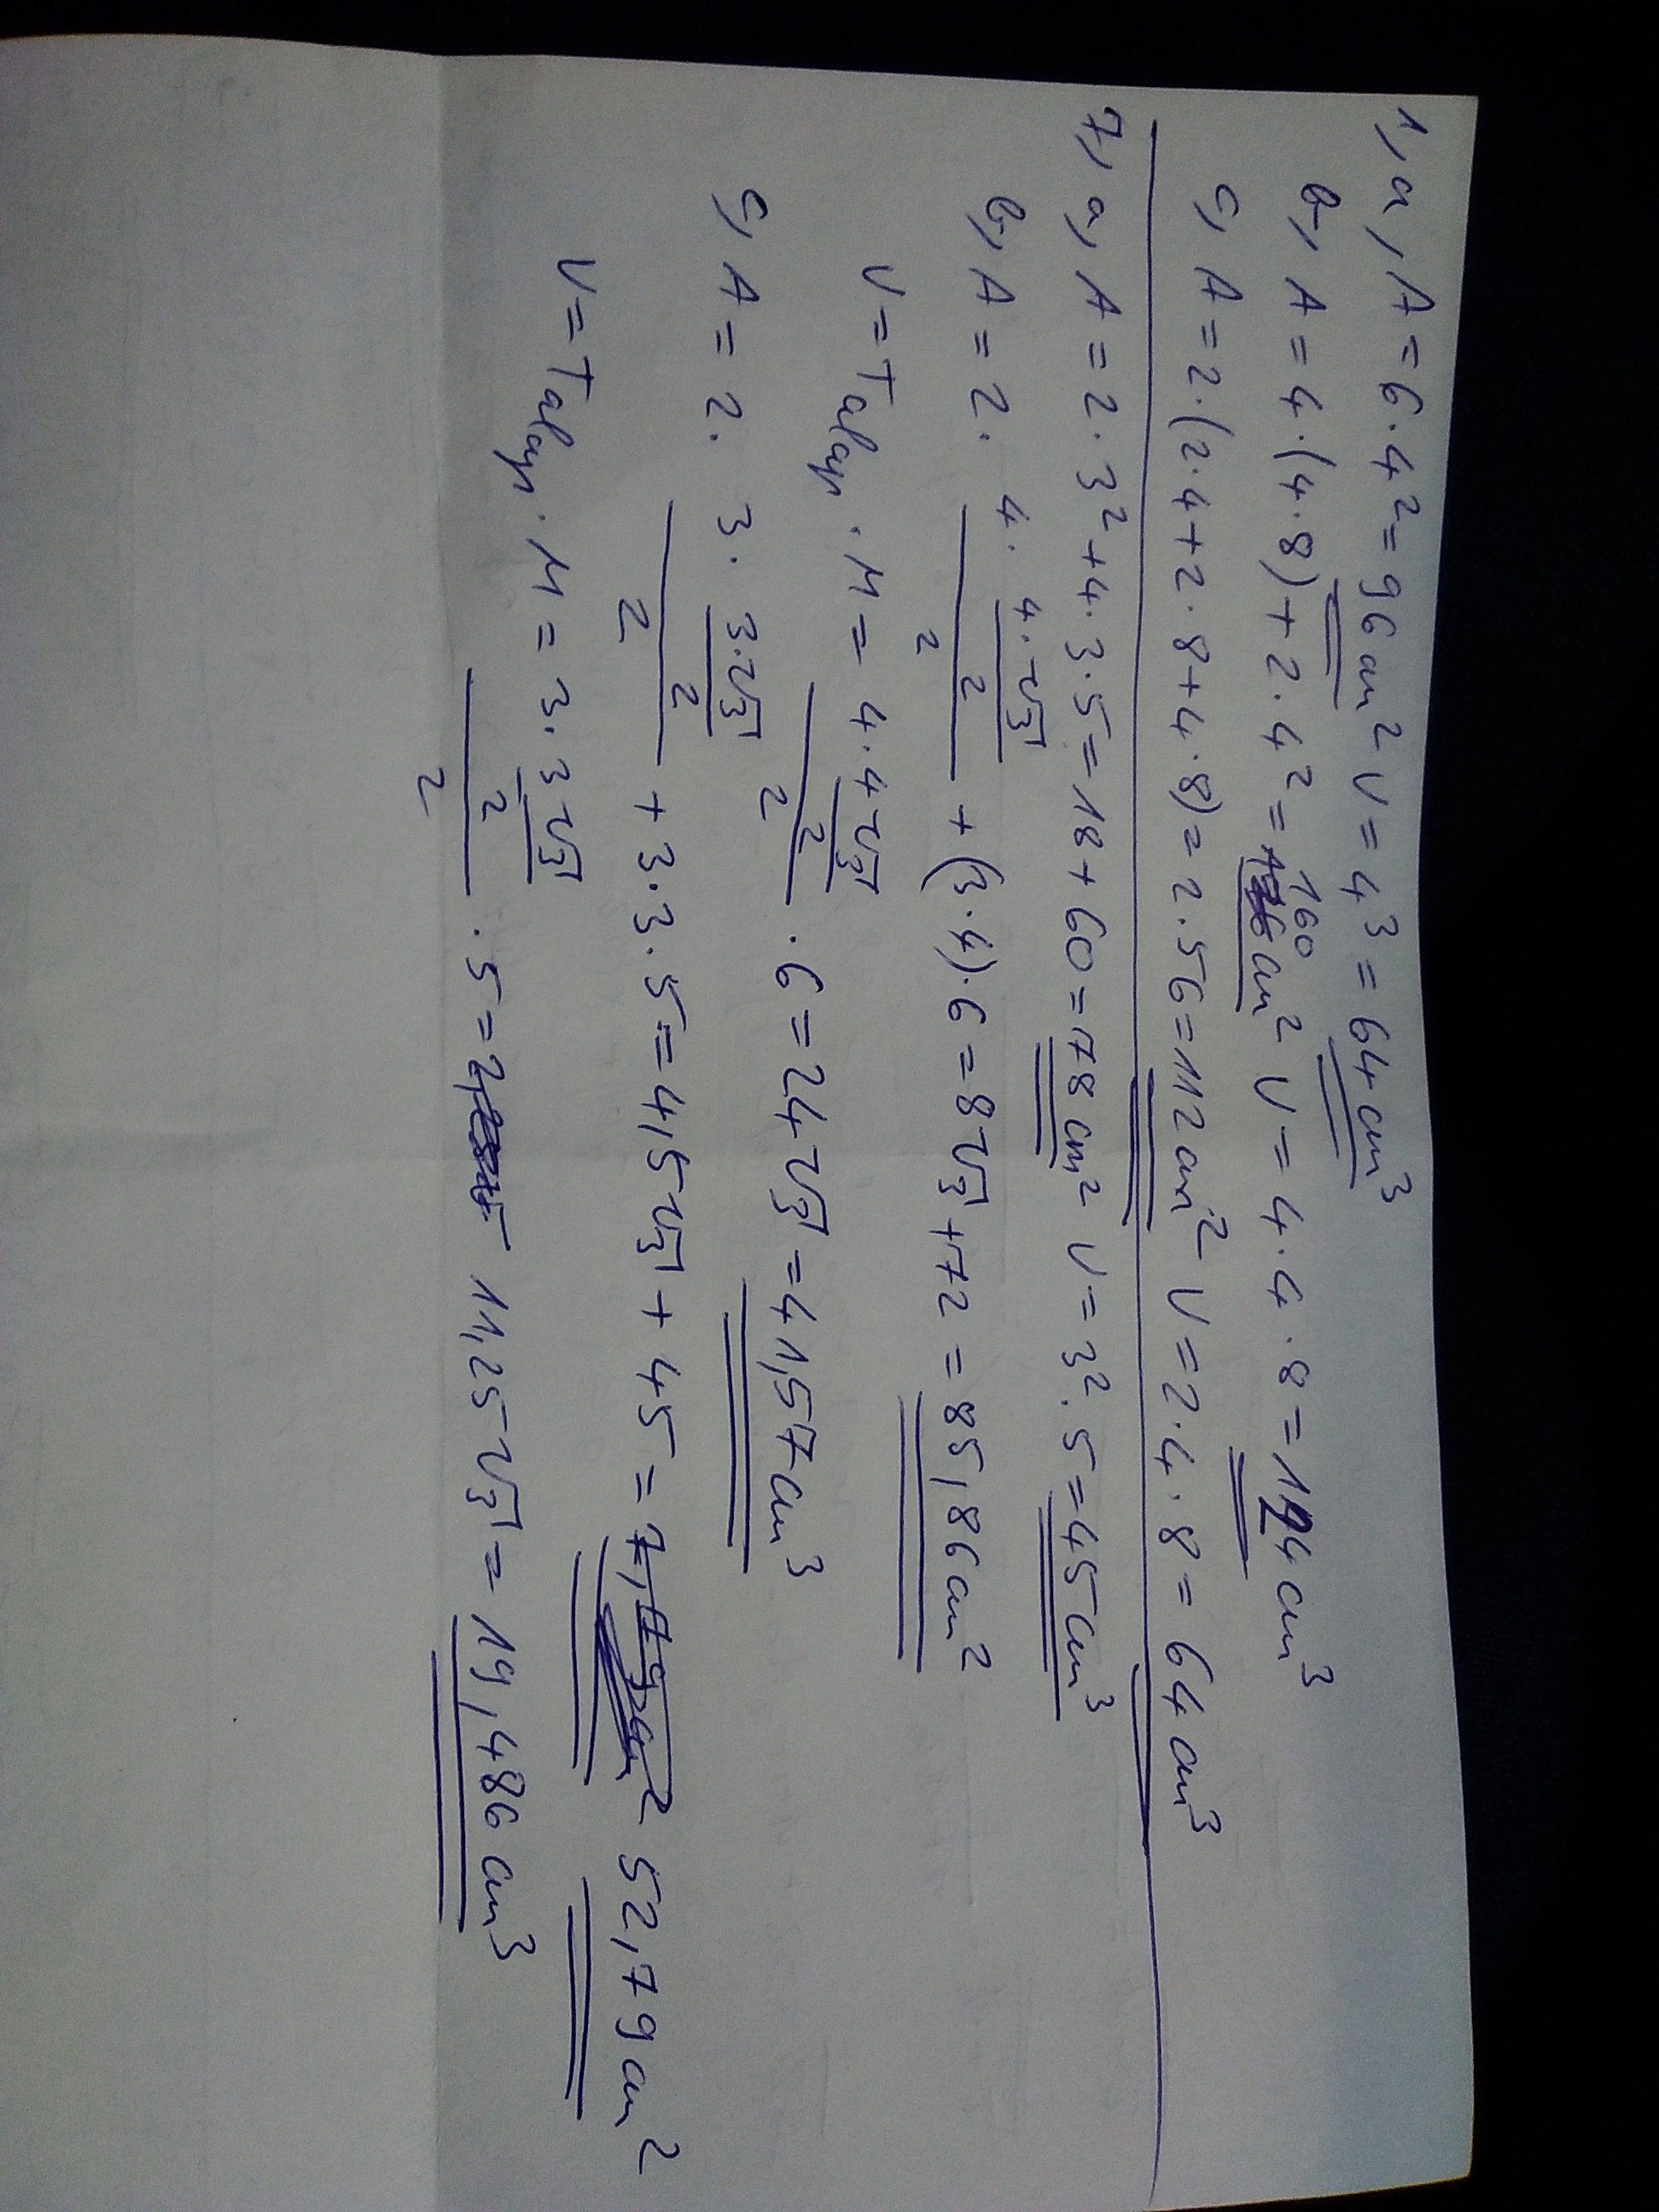 1, a, A = 6·4² = 96 cm² V = 4³ = 64 cm³
b, A = 4·(4·8) + 2·4² = 160 cm² V = 4·4·8 = 124 cm³
c, A = 2·(2·4+2·8+4·8) = 2·56 = 112 cm² V = 2·4·8 = 64 cm³
7, a, A = 2·3²+4·3·5 = 18+60 = 78 cm² V = 3²·5 = 45 cm³
b, A = 2· (4· (4·√3)/2)/2 + (3·4)·6 = 8√3 + 72 = 85,86 cm²
V = Talap · M = (4· (4√3)/2)/2 · 6 = 24√3 = 41,57 cm³
c, A = 2· (3· (3·√3)/2)/2 + 3·3·5 = 4,5√3 + 45 = 52,79 cm²
V = Talap · M = (3· (3√3)/2)/2 · 5 = 11,25√3 = 19,486 cm³